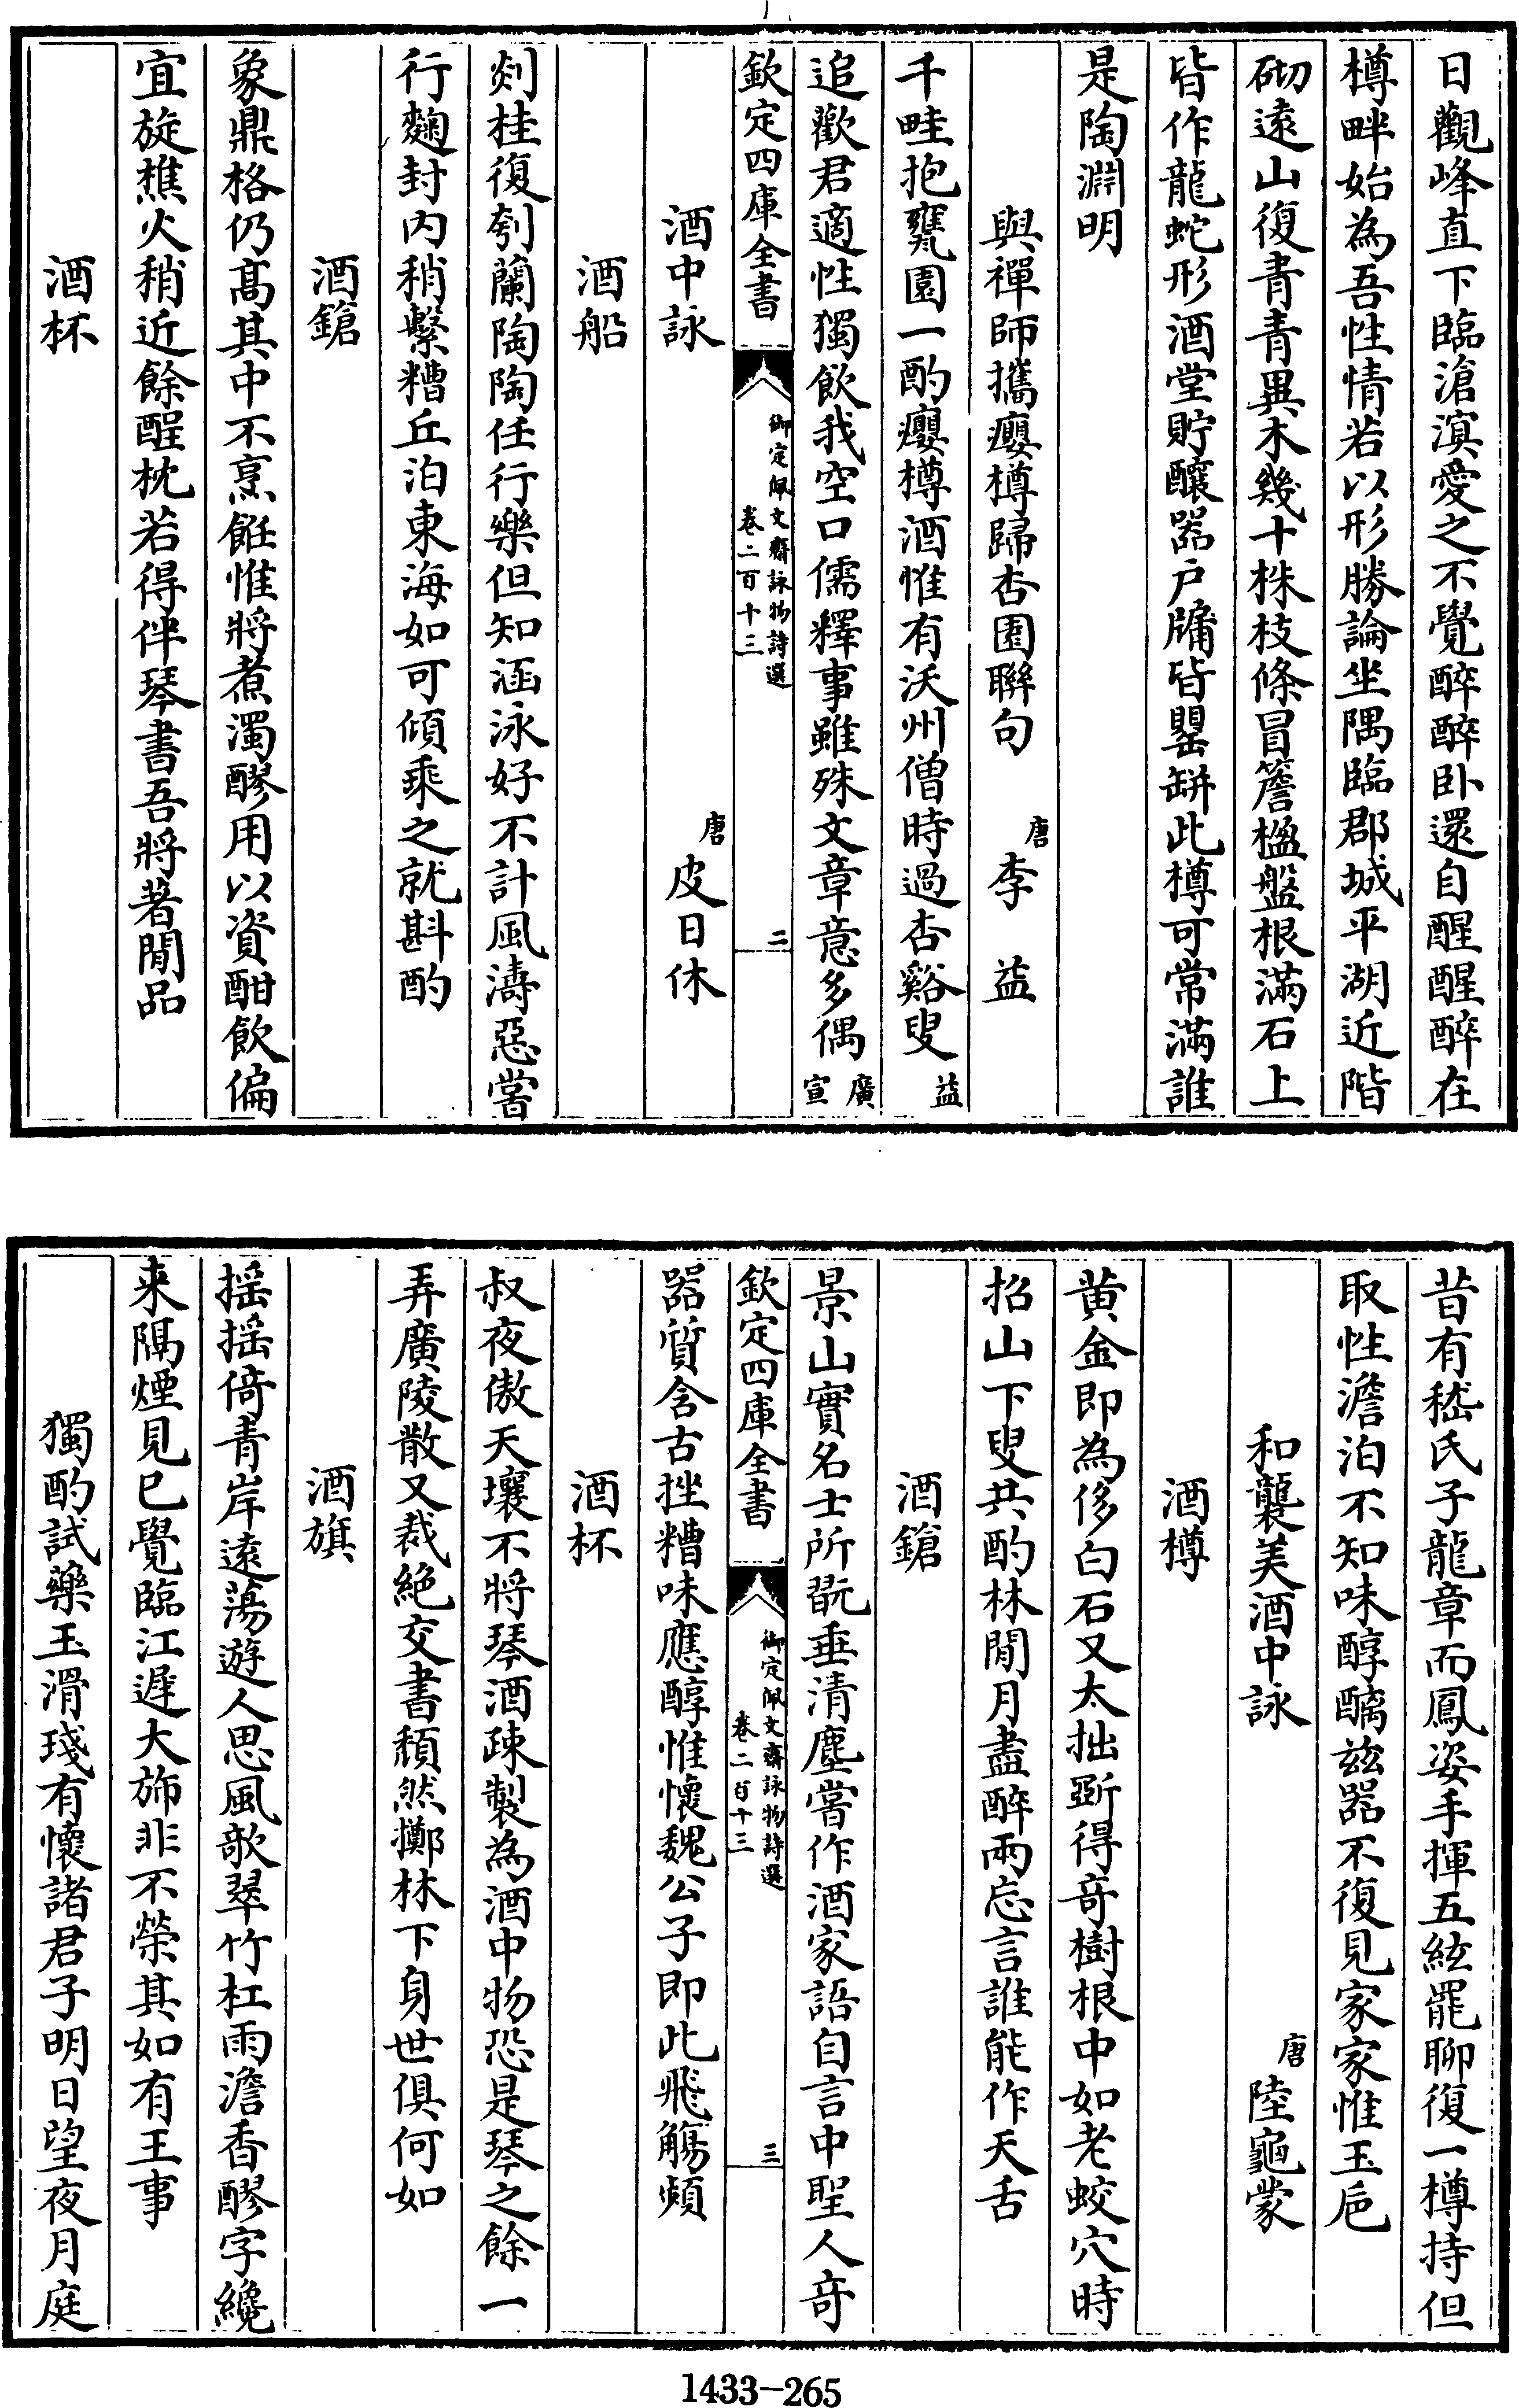 日觀峰直下臨滄溟愛之不覺醉醉卧還自醒醒醉在
樽畔始為吾性情若以形勝論坐隅臨郡城平湖近階
砌遠山復青青異木幾十株枝條冒簷楹盤根滿石上
皆作龍蛇形酒堂貯釀器户牖皆罌缾此樽可常滿誰
是陶淵明
與禪師攜癭樽歸杏園聯句 唐 李益
千畦抱甕園一酌癭樽酒惟有沃州僧時過杏谿叟益
追歡君適性獨飲我空口儒釋事雖殊文章意多偶廣宣
欽定四庫全書 御定佩文齋詠物詩選 卷二百十三 二
酒中詠 唐 皮日休
酒船
剡桂復刳蘭陶陶任行樂但知涵泳好不計風濤惡嘗
行麴封内稍繫糟丘泊東海如可傾乘之就斟酌
酒鎗
象鼎格仍高其中不烹飪惟將煮濁醪用以資酣飲偏
宜旋樵火稍近餘酲枕若得伴琴書吾將著閒品
酒杯
昔有嵇氏子龍章而鳳姿手揮五絃罷聊復一樽持但
取性澹泊不知味醇醨兹器不復見家家惟玉卮
和襲美酒中詠 唐 陸龜蒙
酒樽
黄金即為侈白石又太拙斵得竒樹根中如老蛟穴時
招山下叟共酌林閒月盡醉兩忘言誰能作天舌
酒鎗
景山實名士所翫垂清塵嘗作酒家語自言中聖人竒
欽定四庫全書 御定佩文齋詠物詩選 卷二百十三 三
器質含古挫糟味應醇惟懷魏公子即此飛觴頻
酒杯
叔夜傲天壤不將琴酒疎製為酒中物恐是琴之餘一
弄廣陵散又裁絶交書頽然擲林下身世俱何如
酒旗
摇摇倚青岸遠蕩遊人思風欹翠竹杠雨澹香醪字纔
来隔煙見已覺臨江遲大斾非不榮其如有王事
獨酌試藥玉滑琖有懷諸君子明日望夜月庭
1433-265